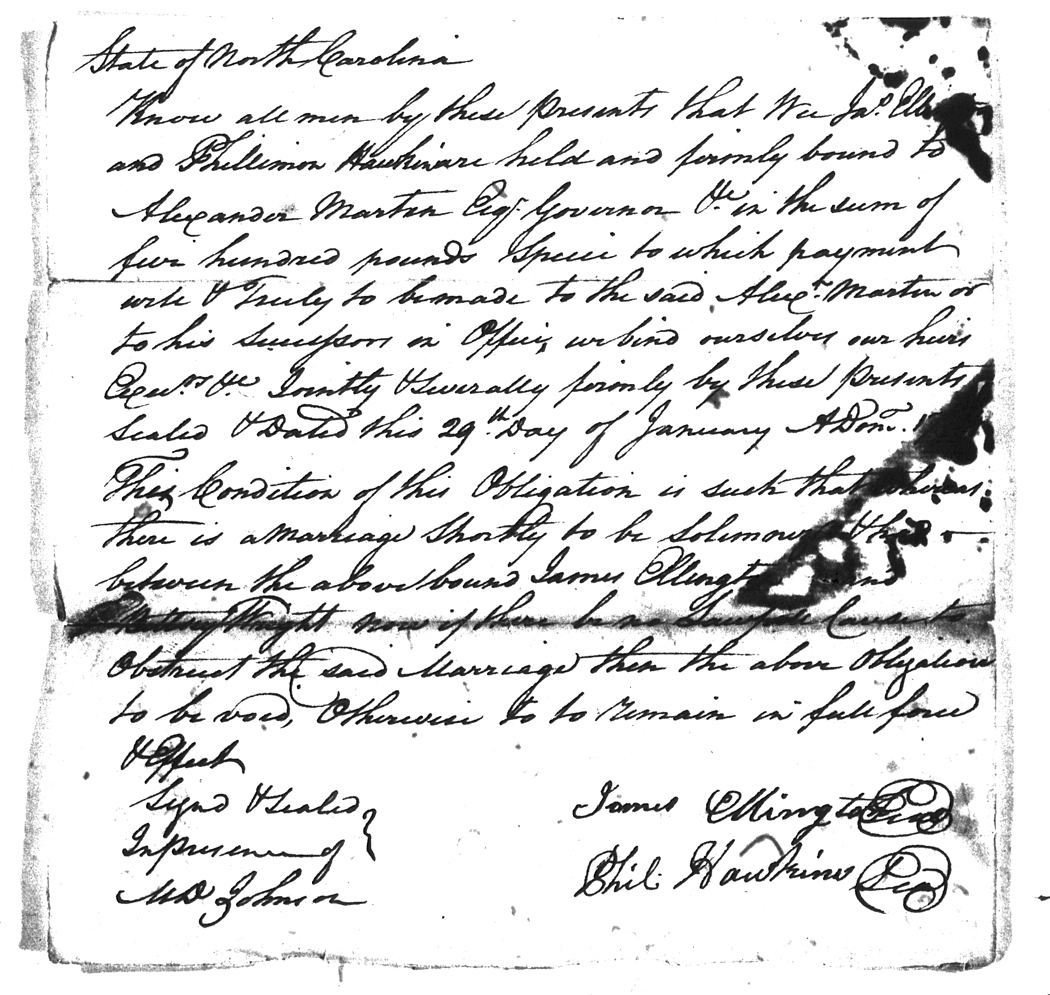 State of North Carolina
Know all men by these presents that Wee Jas. Ell
and Phillimon Hawkins are held and firmly bound to
Alexander Martin Esqr. Governor &c. in the sum of
five hundred pounds Specie to which payment
well & Truly to be made to the said Alexr. Martin or
to his Successors in Office, we bind ourselves our heirs
Exeurs. &c. Jointly & Severally firmly by these presents
Sealed & Dated this 29th. Day of January A Dom. 1
This Condition of this Obligation is such that whereas
there is a Marriage Shortly to be Solemnized & had
between the above bound James Ellington and
now if there be no Lawfull Cause to
Obstruct the said Marriage then the above Obligation
to be void, Otherwise to to remain in full force
& Effect
Signd & Sealed
In presence of
James Ellington Seal
MD Johnson
Phil. Hawkins Seal